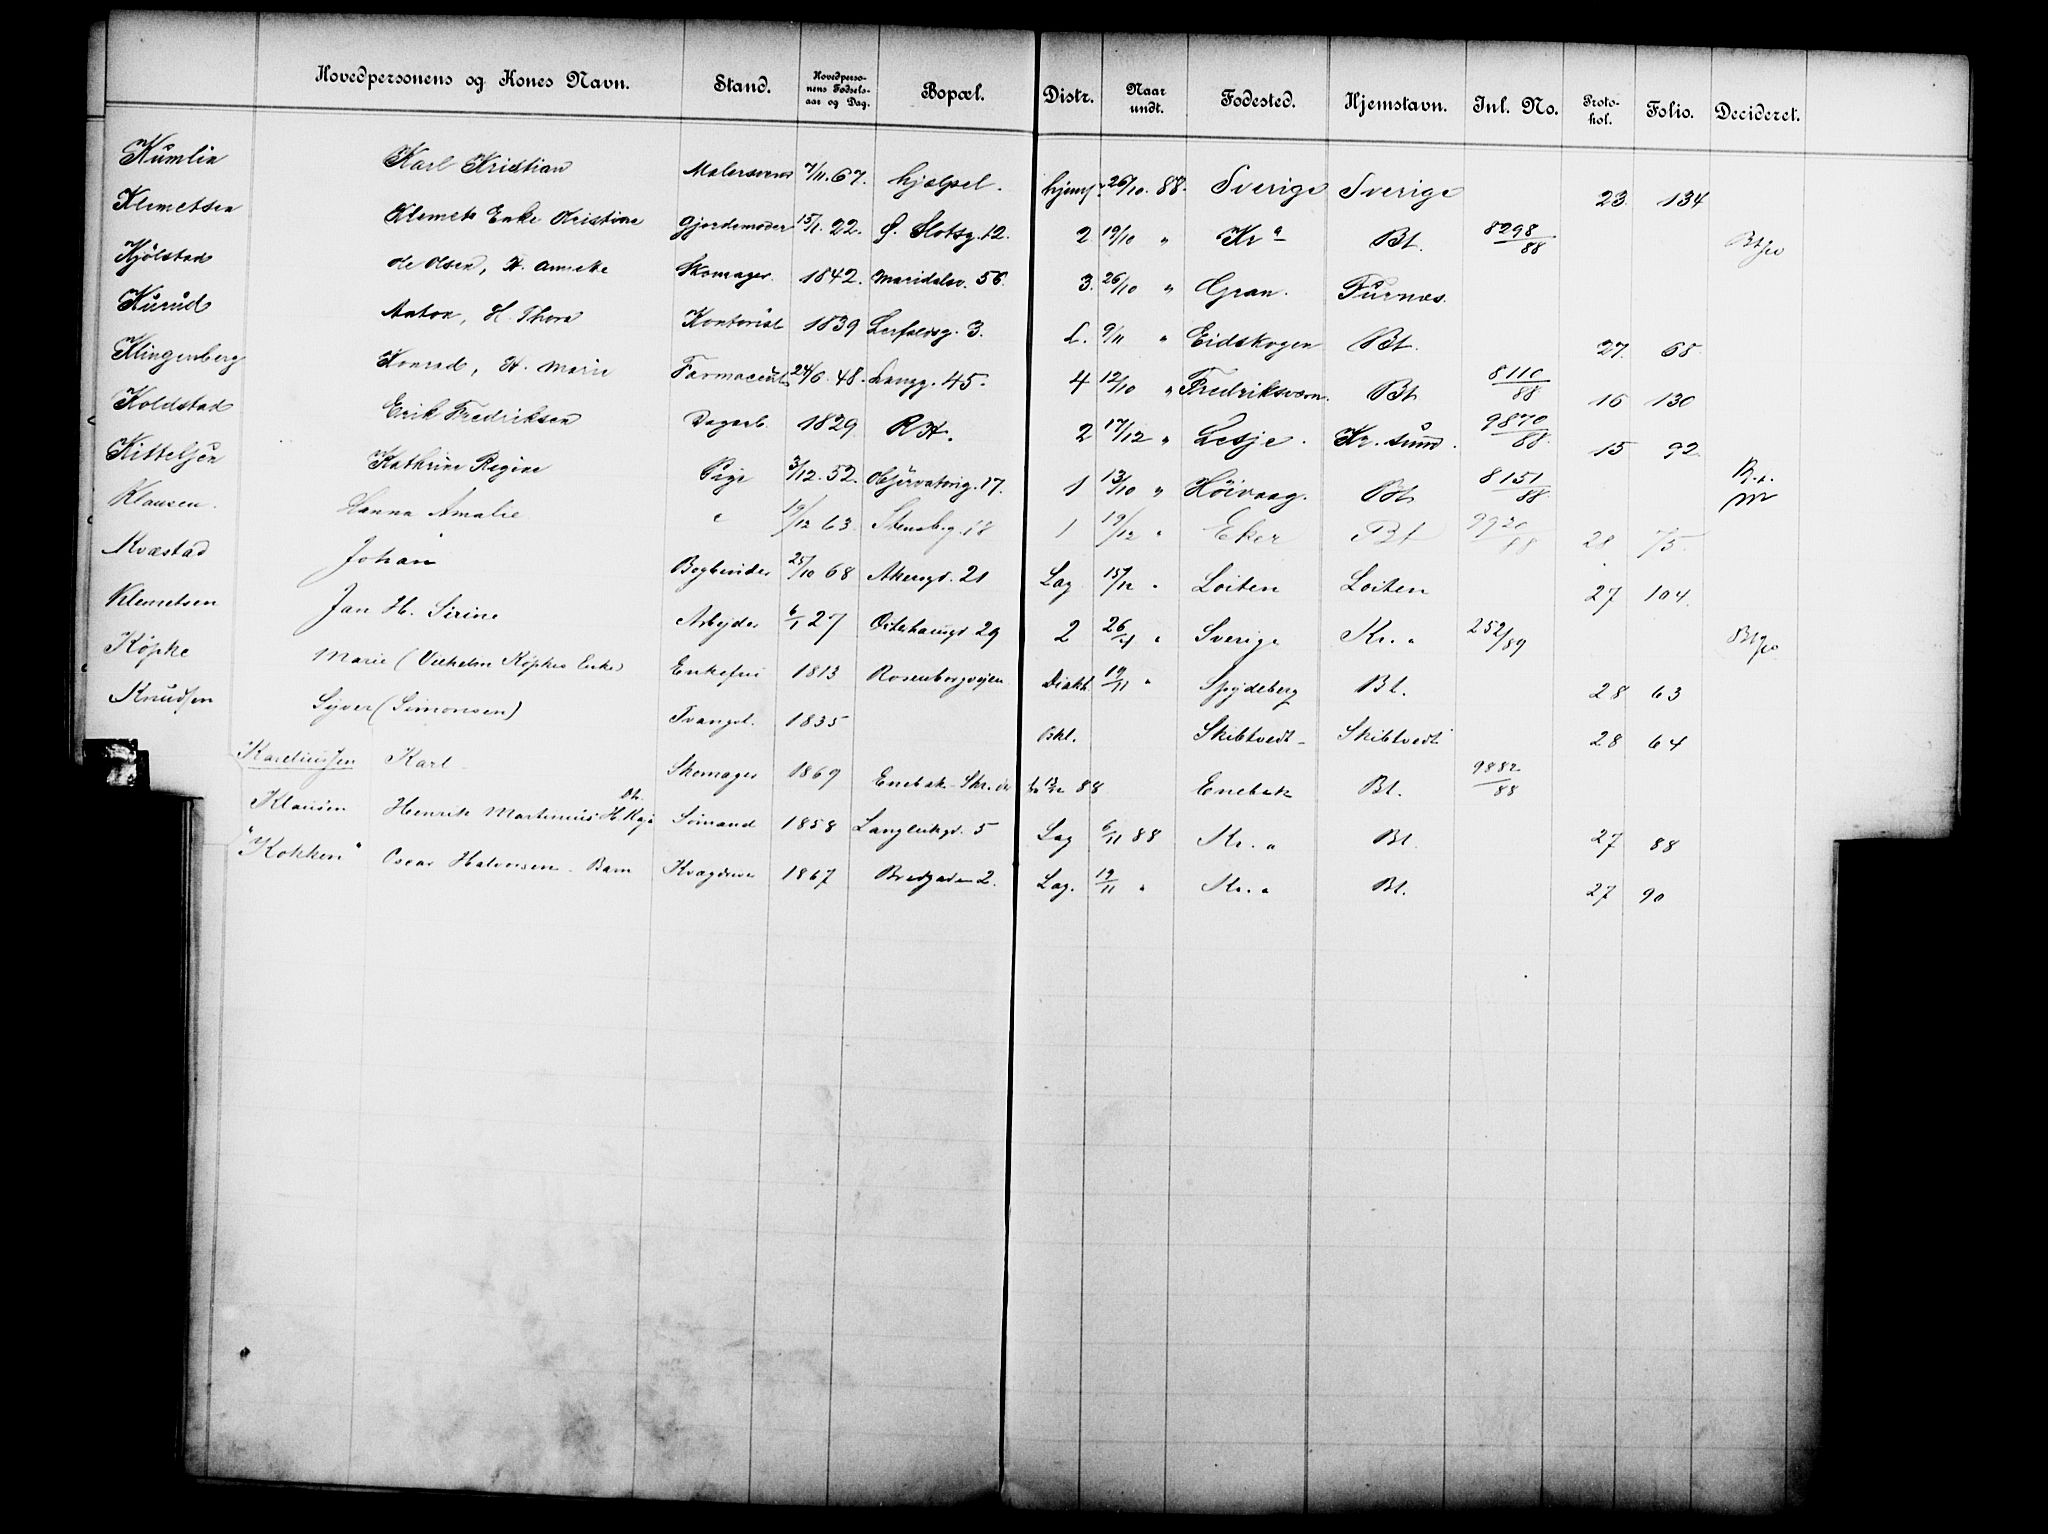 Hovedpersonens og Kones Navn. Stand. Hovedpersonens Fødselsaar og Dag. Bopæl. Distr. Naar undt. Fødested. Hjemstavn. Inl. No. Protokol. Folio. Decideret.
Kumlin Karl Kristian Malersvend 7/11. 67. hjælpsl. hjemf. 26/10. 88. Sverige Sverige 23. 134
Klemetsen Klemets Enke Kristine Gjordemoder 15/1. 22. S. Slotsg. 12. 2 19/10 " Kr a Bt. 8298/88
Kjölstad Ole Olsen, H. Anneke Skomager. 1842. Maridalsv. 56. 3. 26/10 " Gran. Furnæs.
Kurud Anton, H. Thora Kontorist 1839 3. 9/11 " Eidskogen Bt. 27. 68.
Klingenberg Konrad, H. Marie Farmaceut 24/6. 48. Langg. 45. 4 12/10 " Fredriksværn. Bt 8110/88 16 130
Koldstad Erik Fredriksen Dagarb. 1829. R H. 2 17/12 " Lesje. Kr. sund. 9870/88. 15 92.
Kittelsen Kathrine Regine Pige 3/12. 52. Observatorig. 17. 1 13/10 " Höivaag. Bt 8151/88.
Klausen. Hanna Amalie " 19/12 63. Stensbg. 18 1 19/12 " Eker Bt 9920/88 28 75.
Kvæstad Johan Bogbinder 25/10 68 Akersgd. 21 Lag 15/12 " Loiten Loiten 27 104.
Klemetsen Jan H. Sirine Arbejder 6/1 27 Osterhausgd. 29 2 26/4 " Sverige Kr. a 252/89
Köpke Marie (Vilhelm Köpkes Enke) Enkefru 1813 Rosenborgvejen Diakh. 19/11 " Spydeberg Bt. 28 63
Knudsen Syver (Simonsen) Tvangsl. 1835 Bkl. Skibtvedt Skibtvedt 28 64
Kareliussen Karl Skomager 1869 Enebak 88 Enebak Bt. 9882/88
Klausen Henrik Martinius H. Kaja Sömand 1858 5 Lag 6/11 88 Kr. a Bt. 27 88
"Kokken" Oscar Halvorsen Barn 1867 Bredgaden 2. Lag. 19/11 " Kr. a Bt. 27 90